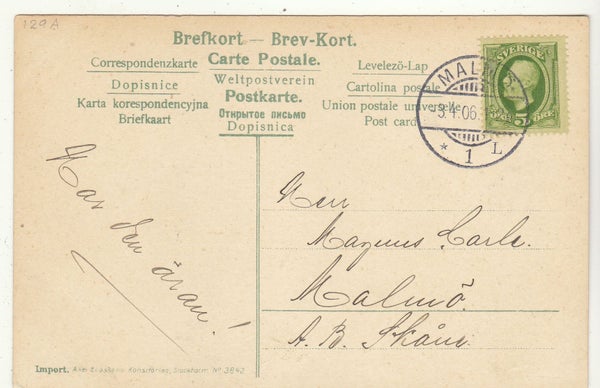 129A
Brefkort — Brev-Kort.
Correspondenzkarte Carte Postale. Levelező-Lap
Dopisnice Weltpostverein Cartolina postale
Karta korespondencyjna Postkarte. Union postale universelle
Briefkaart Открытое письмо Post card
Dopisnica
SVERIGE
5 ÖRE
MALMÖ
3.4.06.
* 1 L
Har den äran!
Herr
Magnus Carle.
Malmö.
A. B. Skåne
Import. Axel Eliassons Konstförlag, Stockholm No 3842